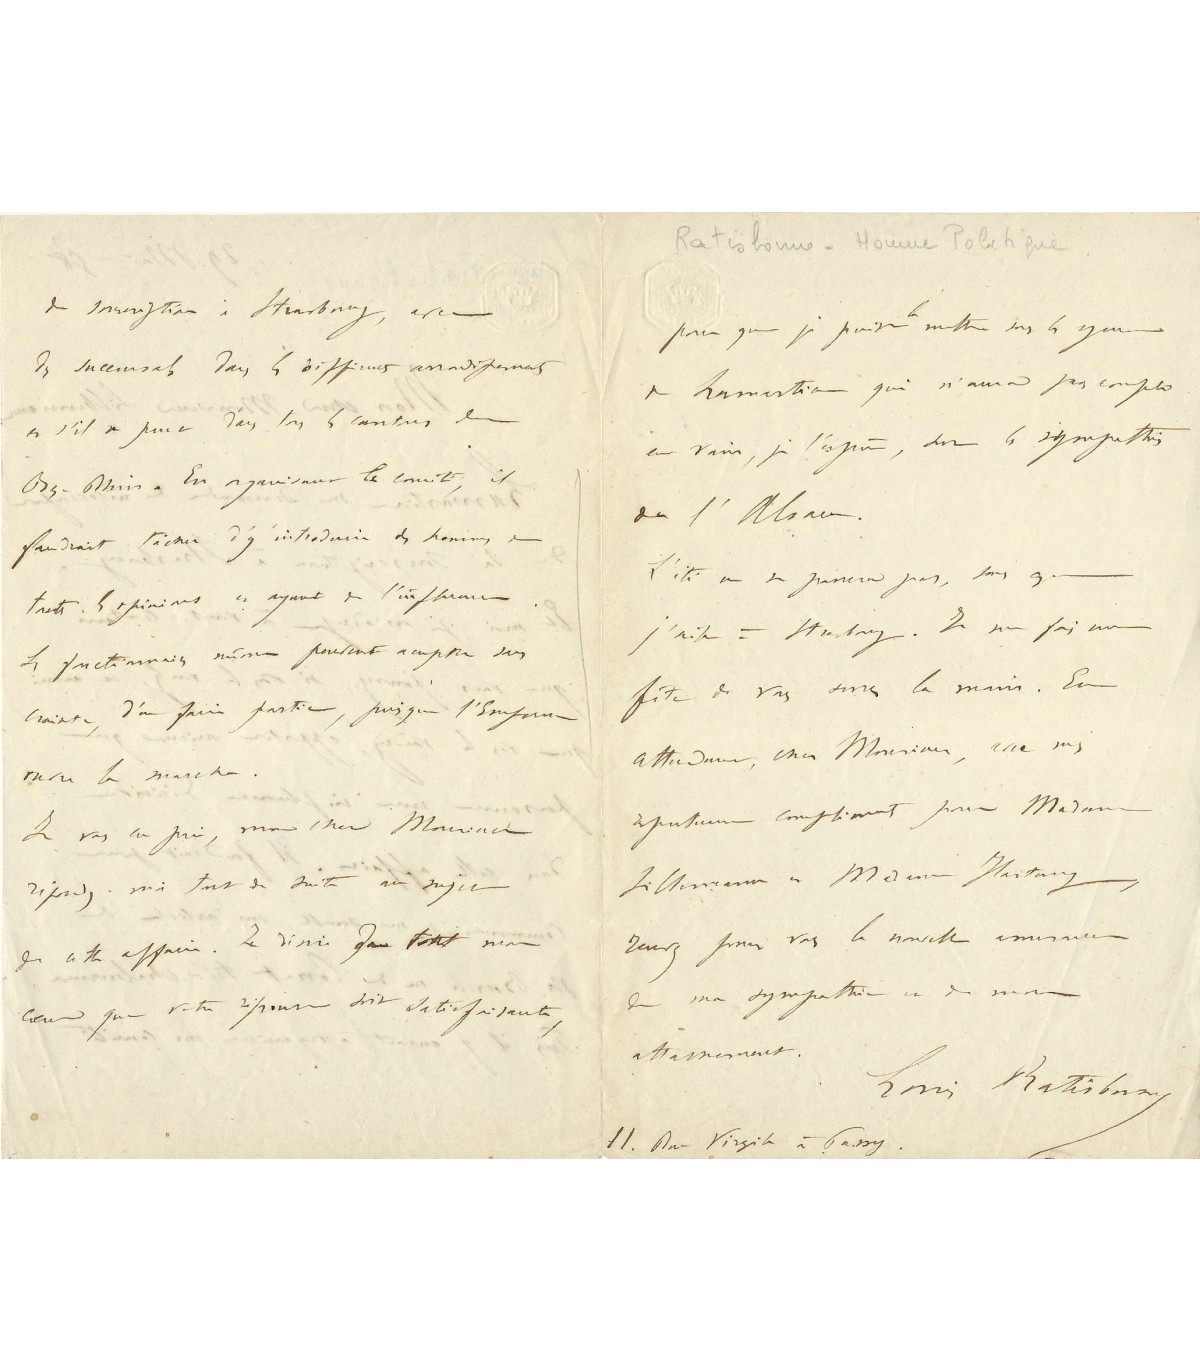 de souscription à Strasbourg, avec
des succursales dans les différents arrondissements
et s'il se peut dans tous les cantons du
Bas-Rhin. En organisant le comité, il
faudrait tâcher d'y introduire des hommes de
toutes les opinions et ayant de l'influence.
Les fonctionnaires même peuvent accepter sans
crainte, d'en faire partie, puisque l'Empereur
ouvre la marche.
Je vous en prie, mon cher Monsieur
répondez-moi tout de suite au sujet
de cette affaire. Je désire de tout mon
cœur que votre réponse soit satisfaisante,
Ratisbonne - Homme Politique
pour que je puisse la mettre sous les yeux
de Lamartine qui n'aura pas compté
en vain, je l'espère, sur les sympathies
de l'Alsace.
L'été ne se passera pas, sans que
j'aille à Strasbourg. Je me fais une
fête de vous serrer la main. En
attendant, cher Monsieur, avec mes
respectueux compliments pour Madame
Silbermann et Madame Hartung,
recevez pour vous la nouvelle assurance
de ma sympathie et de mon
attachement.
Louis Ratisbonne
11. Rue Virgile à Passy.